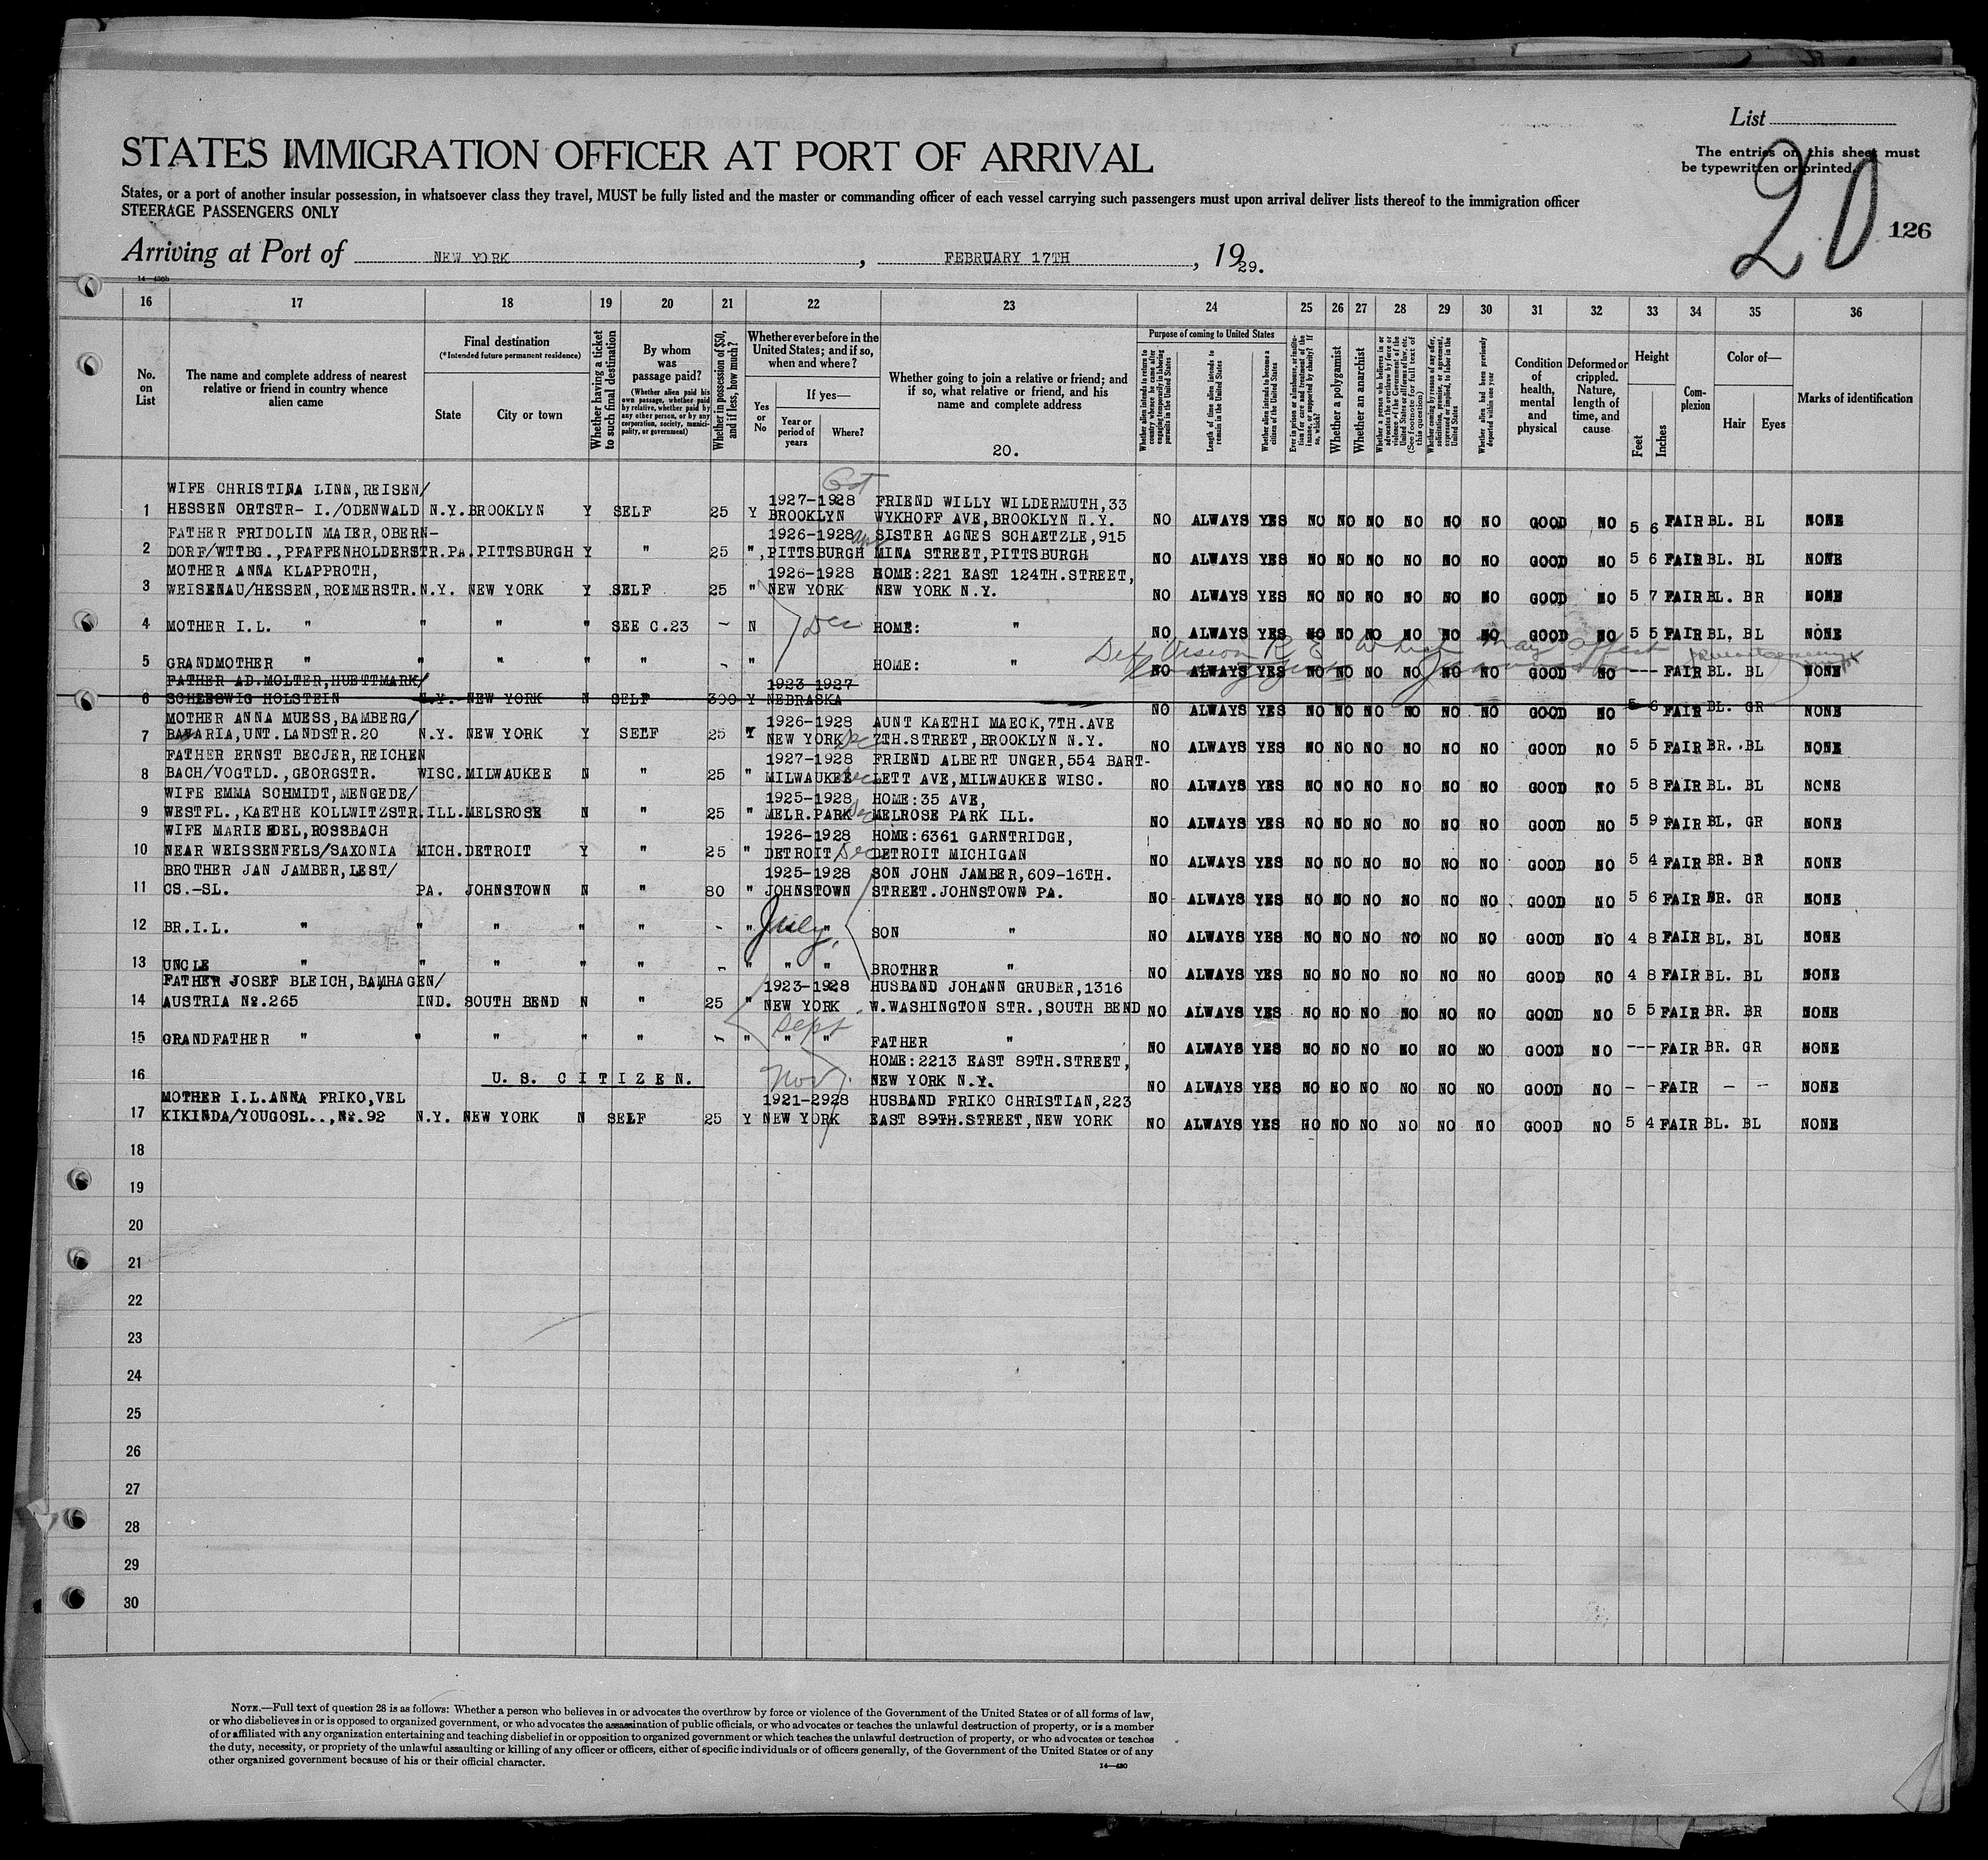 List
STATES IMMIGRATION OFFICER AT PORT OF ARRIVAL
The entries on this sheet must
be typewritten or printed.
20
States, or a port of another insular possession, in whatsoever class they travel, MUST be fully listed and the master or commanding officer of each vessel carrying such passengers must upon arrival deliver lists thereof to the immigration officer
STEERAGE PASSENGERS ONLY
126
Arriving at Port of NEW YORK, FEBRUARY 17TH, 1929.
16 17 18 19 20 21 22 23 24 25 26 27 28 29 30 31 32 33 34 35 36
No. on List
The name and complete address of nearest relative or friend in country whence alien came
Final destination
(*Intended future permanent residence)
State
City or town
Whether having a ticket to such final destination
By whom was passage paid?
(Whether alien paid his own passage, whether paid by relative, whether paid by any other person, or by any corporation, society, municipality, or government)
Whether in possession of $50, and if less, how much?
Whether ever before in the United States; and if so, when and where?
Yes or No
If yes—
Year or period of years
Where?
Whether going to join a relative or friend; and if so, what relative or friend, and his name and complete address
20.
Purpose of coming to United States
Whether alien intends to return to country whence he came after engaging temporarily in laboring pursuits in the United States
Length of time alien intends to remain in the United States
Whether alien intends to become a citizen of the United States
Ever in prison or almshouse, or institution for care and treatment of the insane, or supported by charity? If so, which?
Whether a polygamist
Whether an anarchist
Whether alien had been previously deported within one year
Condition of health, mental and physical
Deformed or crippled. Nature, length of time, and cause
Height
Feet
Inches
Complexion
Color of—
Hair
Eyes
Marks of identification
WIFE CHRISTINA LINN, REISEN/ 1927-1928 FRIEND WILLY WILDERMUTH,33
1 HESSEN ORTSTR- I./ODENWALD N.Y. BROOKLYN Y SELF 25 Y BROOKLYN WYKHOFF AVE,BROOKLYN N.Y. NO ALWAYS YES NO NO NO NO NO NO GOOD NO 5 6 FAIR BL. BL NONE
FATHER FRIDOLIN MAIER,OBERN- 1926-1928 SISTER AGNES SCHAETZLE,915
2 DORF/WTTBG.,PFAFFENHOLDERSTR.PA. PITTSBURGH Y " 25 " PITTSBURGH MINA STREET,PITTSBURGH NO ALWAYS YES NO NO NO NO NO NO GOOD NO 5 6 FAIR BL. BL NONE
MOTHER ANNA KLAPPROTH, 1926-1928 HOME:221 EAST 124TH.STREET,
3 WEISENAU/HESSEN,ROEMERSTR. N.Y. NEW YORK Y SELF 25 " NEW YORK NEW YORK N.Y. NO ALWAYS YES NO NO NO NO NO NO GOOD NO 5 7 FAIR BL. BR NONE
4 MOTHER I.L. " " " " SEE C.23 - N Dec HOME: " NO ALWAYS YES NO NO NO NO NO NO GOOD NO 5 5 FAIR BL. BL NONE
Def Vision R E which may affect
5 GRANDMOTHER " " " " " - " HOME: " NO ALWAYS YES NO NO NO NO NO NO GOOD NO --- FAIR BL. BL NONE
FATHER AD.MOLTER,HUETTMARK/ 1923-1927
6 SCHLESWIG HOLSTEIN N.Y. NEW YORK N SELF 300 Y NEBRASKA NO ALWAYS YES NO NO NO NO NO NO GOOD NO 5 6 FAIR BL. GR NONE
MOTHER ANNA MUESS,BAMBERG/ 1926-1928 AUNT KAETHI MAECK,7TH.AVE
7 BAVARIA,UNT.LANDSTR.20 N.Y. NEW YORK Y SELF 25 Y NEW YORK Dec 7TH.STREET,BROOKLYN N.Y. NO ALWAYS YES NO NO NO NO NO NO GOOD NO 5 5 FAIR BR. BL NONE
FATHER ERNST BECJER,REICHEN 1927-1928 FRIEND ALBERT UNGER,554 BART-
8 BACH/VOGTLD.,GEORGSTR. WISC. MILWAUKEE N " 25 " MILWAUKEE Dec LETT AVE,MILWAUKEE WISC. NO ALWAYS YES NO NO NO NO NO NO GOOD NO 5 8 FAIR BL. BL NONE
WIFE EMMA SCHMIDT,MENGEDE/ 1925-1928 HOME:35 AVE,
9 WESTFL.,KAETHE KOLLWITZSTR. ILL. MELSROSE N " 25 " MELR.PARK Dec MELROSE PARK ILL. NO ALWAYS YES NO NO NO NO NO NO GOOD NO 5 9 FAIR BL. GR NONE
WIFE MARIE EDEL,ROSSBACH 1926-1928 HOME:6361 GARNTRIDGE,
10 NEAR WEISSENFELS/SAXONIA MICH. DETROIT Y " 25 " DETROIT Dec DETROIT MICHIGAN NO ALWAYS YES NO NO NO NO NO NO GOOD NO 5 4 FAIR BR. BR NONE
BROTHER JAN JAMBER,LEST/ 1925-1928 SON JOHN JAMBER,609-16TH.
11 CS.-SL. PA. JOHNSTOWN N " 80 " JOHNSTOWN STREET.JOHNSTOWN PA. NO ALWAYS YES NO NO NO NO NO NO GOOD NO 5 6 FAIR BR. GR NONE
12 BR.I.L. " " " " " - " July " SON " NO ALWAYS YES NO NO NO NO NO NO GOOD NO 4 8 FAIR BL. BL NONE
13 UNCLE " " " " " - " " " BROTHER " NO ALWAYS YES NO NO NO NO NO NO GOOD NO 4 8 FAIR BL. BL NONE
FATHER JOSEF BLEICH,BAMHAGEN/ 1923-1928 HUSBAND JOHANN GRUBER,1316
14 AUSTRIA No.265 IND. SOUTH BEND N " 25 " NEW YORK W.WASHINGTON STR.,SOUTH BEND NO ALWAYS YES NO NO NO NO NO NO GOOD NO 5 5 FAIR BR. BR NONE
Sept
15 GRANDFATHER " " " " " - " " " FATHER " NO ALWAYS YES NO NO NO NO NO NO GOOD NO --- FAIR BR. GR NONE
HOME:2213 EAST 89TH.STREET,
16 U.S. CITIZEN. Nov. NEW YORK N.Y. NO ALWAYS YES NO NO NO NO NO NO GOOD NO - - FAIR - -- NONE
MOTHER I.L.ANNA FRIKO,VEL 1921-2928 HUSBAND FRIKO CHRISTIAN,223
17 KIKINDA/YOUGOSL..,No.92 N.Y. NEW YORK N SELF 25 Y NEW YORK EAST 89TH.STREET,NEW YORK NO ALWAYS YES NO NO NO NO NO NO GOOD NO 5 4 FAIR BL. BL NONE
18
19
20
21
22
23
24
25
26
27
28
29
30
NOTE.—Full text of question 28 is as follows: Whether a person who believes in or advocates the overthrow by force or violence of the Government of the United States or of all forms of law,
or who disbelieves in or is opposed to organized government, or who advocates the assassination of public officials, or who advocates or teaches the unlawful destruction of property, or is a member
of or affiliated with any organization entertaining and teaching disbelief in or opposition to organized government or which teaches the unlawful destruction of property, or who advocates or teaches
the duty, necessity, or propriety of the unlawful assaulting or killing of any officer or officers, either of specific individuals or of officers generally, of the Government of the United States or of any
other organized government because of his or their official character.
14—430